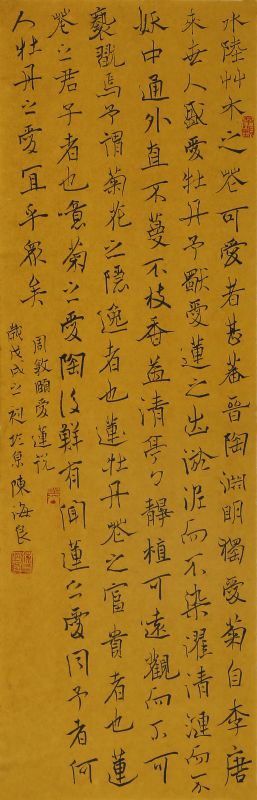 水陸艸木之花可愛者甚蕃晉陶淵明獨愛菊自李唐
來世人盛愛牡丹予獸愛蓮之出淤泥而不染濯清漣而不
妖中通外直不蔓不枝香益清亭々靜植可遠觀而不可
褻翫焉予謂菊花之隱逸者也蓮牡丹花之富貴者也蓮
花之君子者也意菊之愛陶後鮮有聞蓮之愛同予者何
人牡丹之愛宜乎眾矣
周敦頤愛蓮說
歲戊戌之於京陳海良